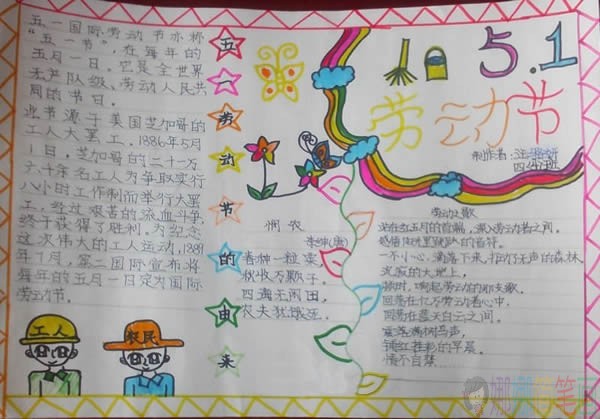 五一国际劳动节亦称
“五一节”，在每年的
五月一日。它是全世界
无产队级、劳动人民共
同的节日。
此节源于美国芝加哥的
工人大罢工。1886年5月
1日，芝加哥的二十一万
六千余名工人为争取实行
八小时工作制而举行大罢
工，经过艰苦的流血斗争，
终于获得了胜利。为纪念
这次伟大的工人运动，1889
年7月，第二国际宣布将
每年的五月一日定为国际
劳动节。
工人
农民
五
一
劳
动
节
的
由
来
悯农
李绅(唐)
春种一粒粟
秋收万颗子
四海无闲田，
农夫犹饿死。
5.1
劳动节
制作者：汪
四 班
劳动之歌
站在红五月的首端，深入劳动者之间。
感悟
一不小心，滴落下来，打动了无声的森林
沉寂的大地上，
顿时，响起劳动的
回荡在亿万劳动者心中，
回荡在蓝天白云之间。
情不自禁